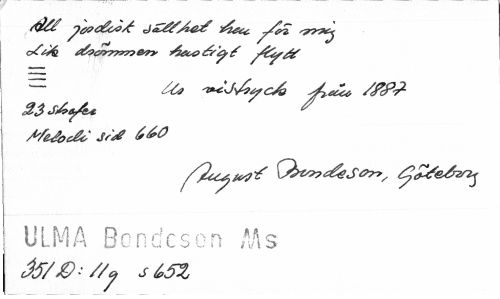 All jordisk sällhet hen för mig
Lik drömmen hastigt flytt
Ur vistryck från 1887
23 strofer
Melodi sid 660
August Bondeson, Göteborg
ULMA Bondeson Ms
351 D: 11 g s 652